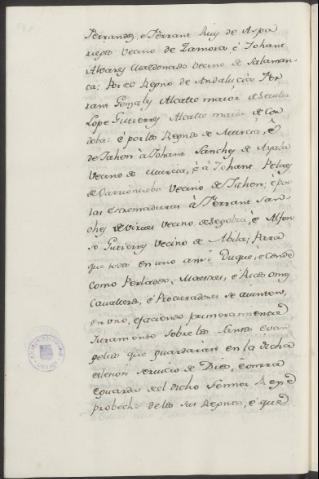 Ferrandes, e Ferrant Ruiz de Aspa
riegos Vecino de Zamora, é Johan
Alvarez Maldonado Vecino de Salaman
ca; Per el Regno de Andalucia Fer
rant Gonzalez Alcalle maior de Sevilla
Lope Gutierrez Alcalle maior de Cor
doba: é por los Regnos de Murcia, é
de Jahen á Johan Sanchez de Ayala
Vecino de Murcia, é á Johan Pelaez
de Vecino de Jahen; é por
las Estremaduras á Ferrant San
chez de Virues Vecino de Segobia, é Alfon
so Gutierrez Vecino de Abila; Para
que todos en uno asi Duque, é Conde
como Perlados, Maestres, é Ricos Omes
Cavalleros, é Procuradores se aiunten,
en uno, é faciendo primeramente
Juramento sobre los Santos Evan
gelios que guardarán en la dicha
elecion servicio de Dios, é onrra
é guarda del dicho Sennor Rey é
probecho de los sus Regnos, é que